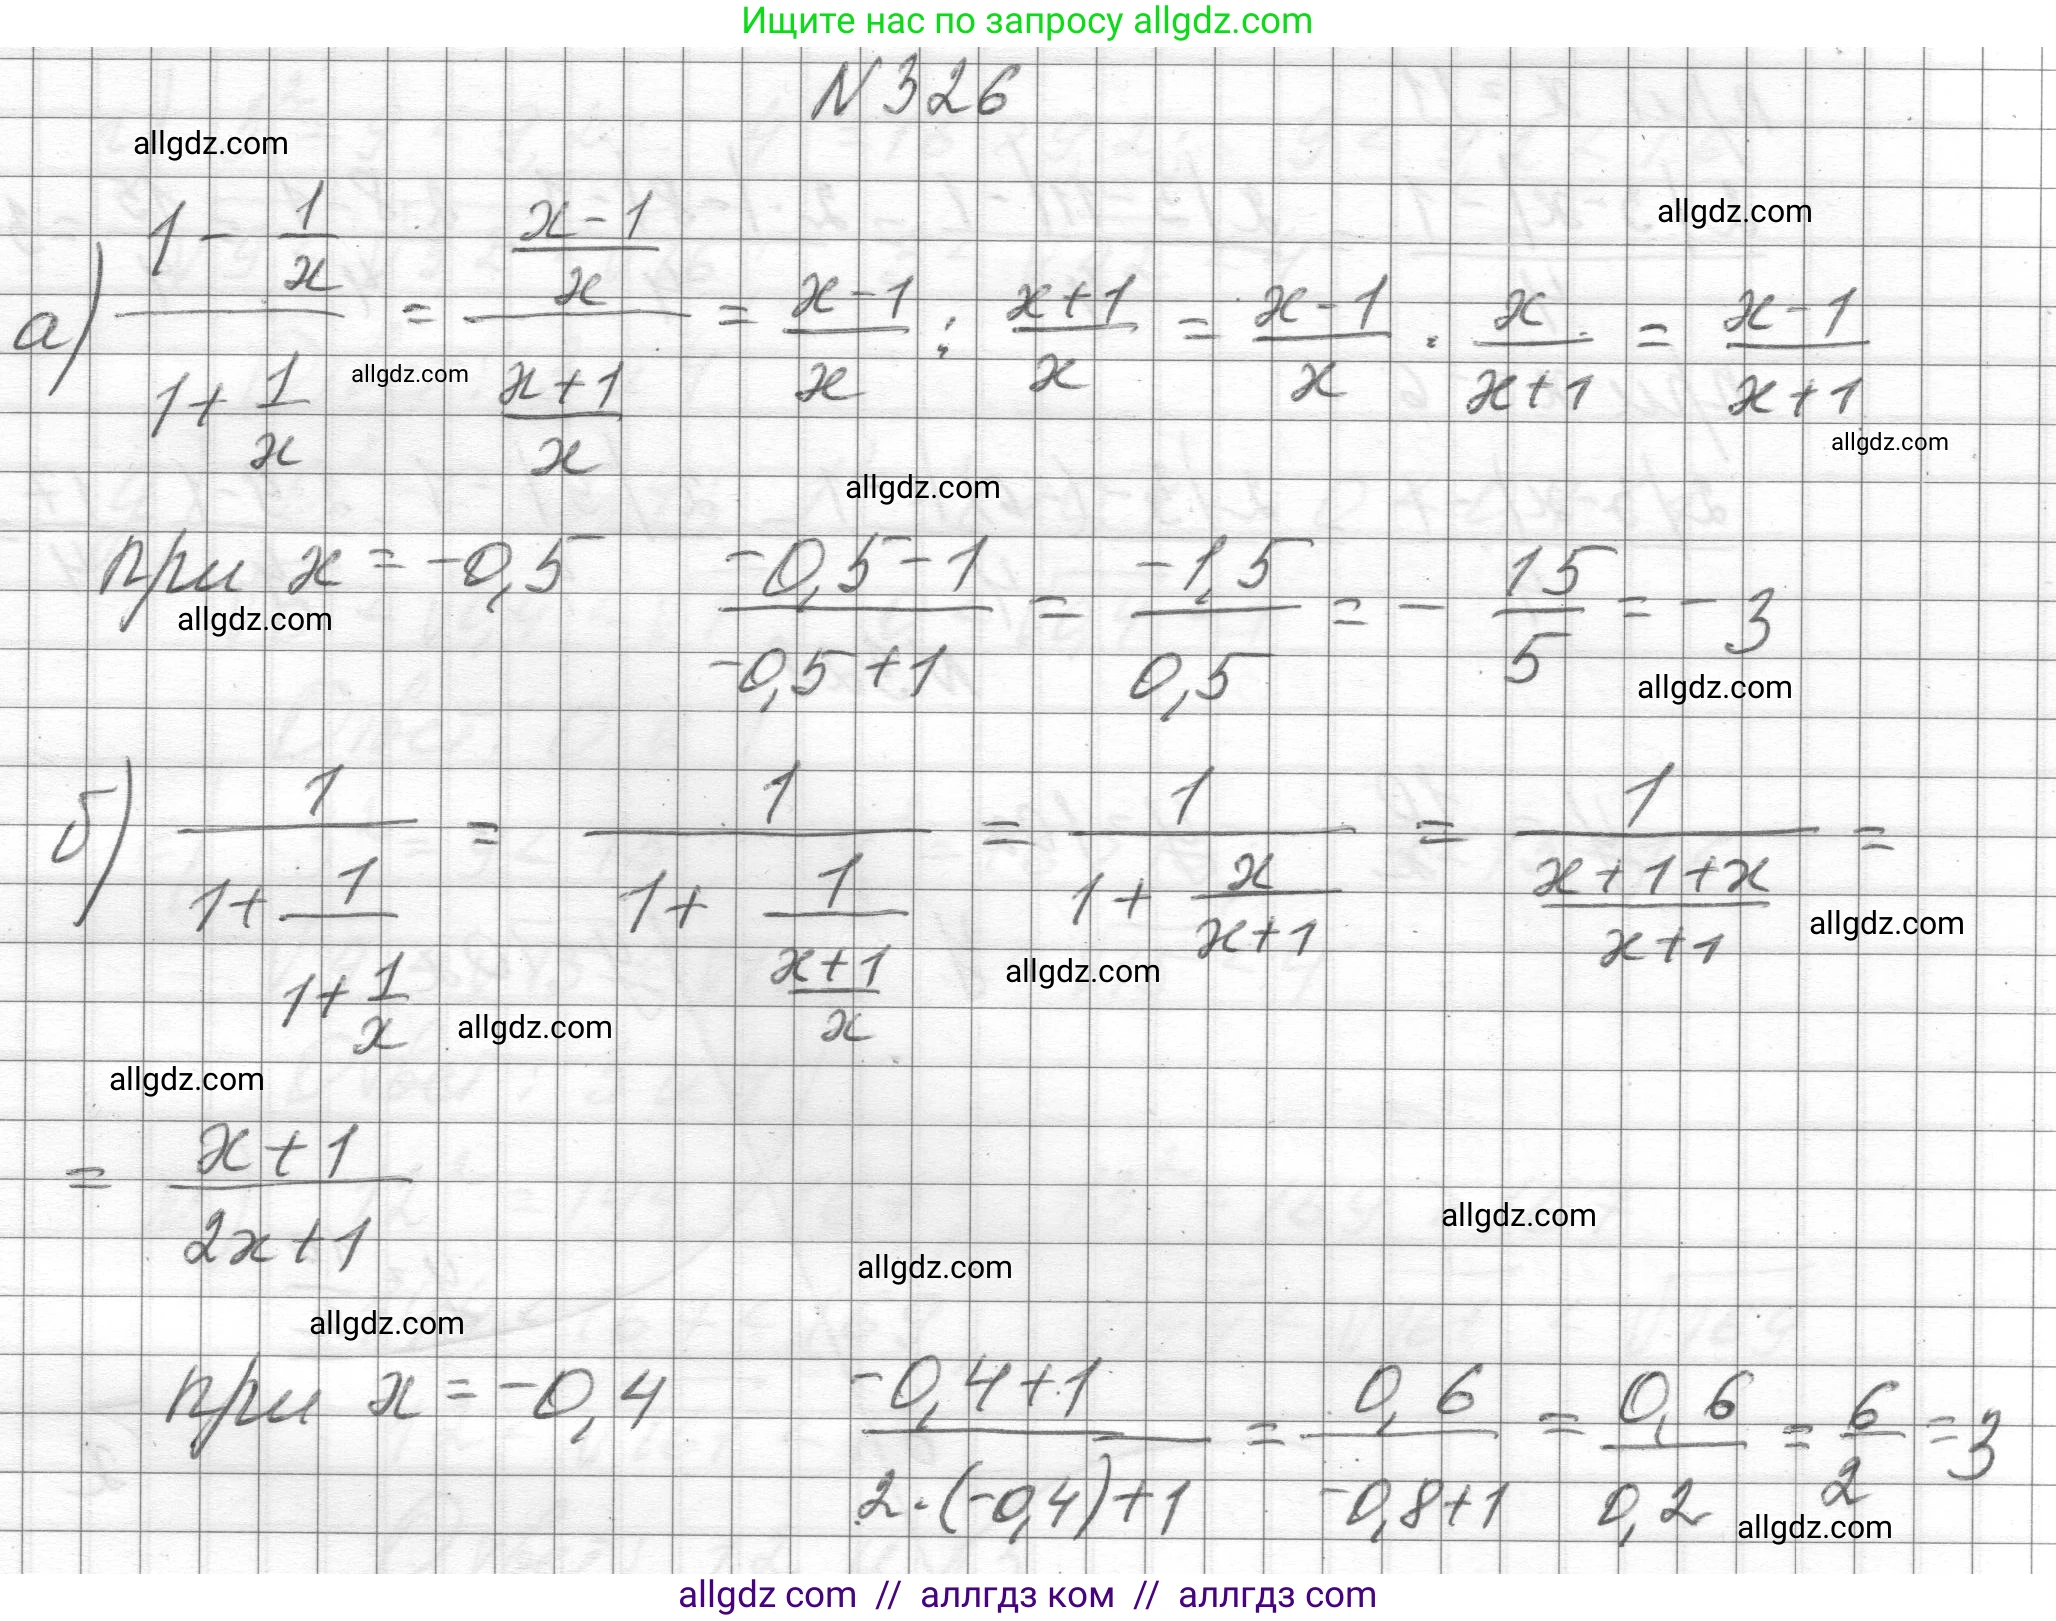 Ищите нас по запросу allgdz.com
N 326
allgdz.com
allgdz.com
а) (1 - 1/x)/(1 + 1/x) = ((x-1)/x)/((x+1)/x) = (x-1)/x : (x+1)/x = (x-1)/x · x/(x+1) = (x-1)/(x+1)
allgdz.com
allgdz.com
allgdz.com
при x = -0,5 (-0,5-1)/(-0,5+1) = -1,5/0,5 = - 15/5 = - 3
allgdz.com
allgdz.com
б) 1/(1 + 1/(1 + 1/x)) = 1/(1 + 1/((x+1)/x)) = 1/(1 + x/(x+1)) = 1/((x+1+x)/(x+1)) =
allgdz.com
allgdz.com
allgdz.com
allgdz.com
= (x+1)/(2x+1)
allgdz.com
allgdz.com
allgdz.com
при x = -0,4 (-0,4+1)/(2·(-0,4)+1) = 0,6/(-0,8+1) = 0,6/0,2 = 6/2 = 3
allgdz.com
allgdz com // аллгдз ком // аллгдз com